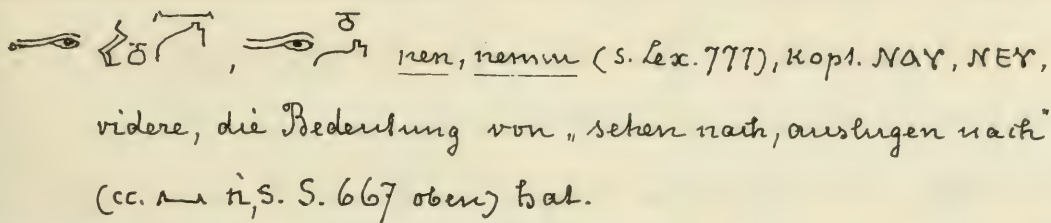 nen, nennu (s. Lex. 777), Kopt. ΝΑΥ, ΝΕΥ,
videre, die Bedeutung von „sehen nach, auslugen nach"
(cc. 𓈖 ṅ, s. S. 667 oben) hat.